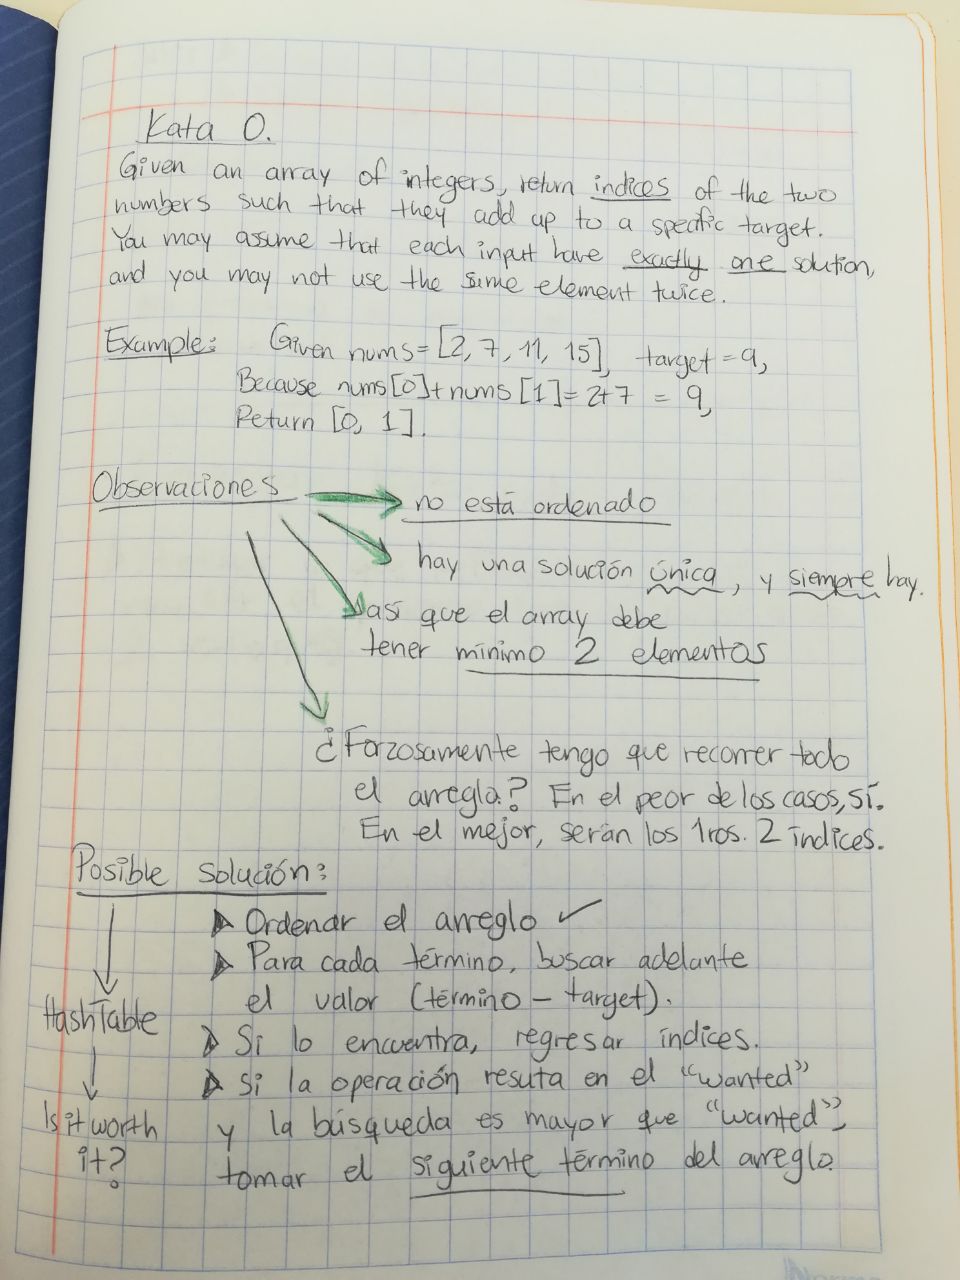 Kata 0.
Given an array of integers, return indices of the two
numbers such that they add up to a specific target.
You may assume that each input have exactly one solution,
and you may not use the same element twice.
Example: Given nums=[2, 7, 11, 15], target = 9,
Because nums[0]+nums[1]= 2+7 = 9,
Return [0, 1].
Observaciones
no está ordenado
hay una solución única, y siempre hay.
así que el array debe
tener mínimo 2 elementos
¿Forzosamente tengo que recorrer todo
el arreglo? En el peor de los casos, sí.
En el mejor, serán los 1ros. 2 índices.
Posible solución:
Ordenar el arreglo ✓
Para cada término, buscar adelante
el valor (término - target).
HashTable
Si lo encuentra, regresar índices.
Si la operación resuta en el "wanted"
Is it worth
it?
y la búsqueda es mayor que "wanted",
tomar el siguiente término del arreglo.